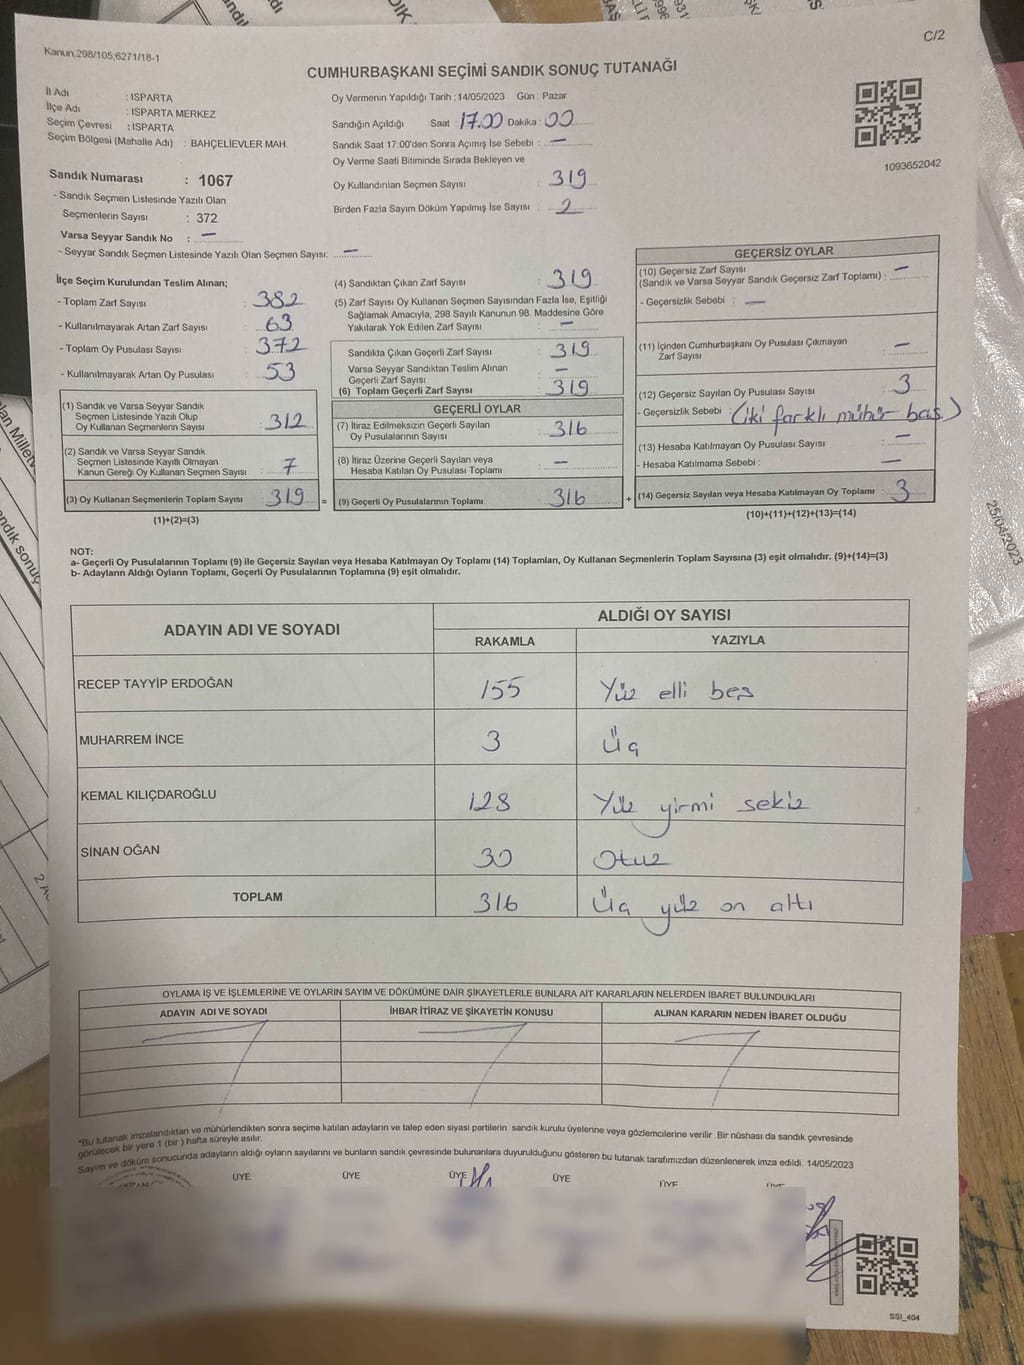 C/2
Kanun,298/105,6271/18-1
CUMHURBAŞKANI SEÇİMİ SANDIK SONUÇ TUTANAĞI
İl Adı : ISPARTA
İlçe Adı : ISPARTA MERKEZ
Seçim Çevresi : ISPARTA
Seçim Bölgesi (Mahalle Adı) : BAHÇELİEVLER MAH.
Sandık Numarası : 1067
- Sandık Seçmen Listesinde Yazılı Olan
Seçmenlerin Sayısı : 372
Varsa Seyyar Sandık No : —
- Seyyar Sandık Seçmen Listesinde Yazılı Olan Seçmen Sayısı: —
Oy Vermenin Yapıldığı Tarih : 14/05/2023 Gün : Pazar
Sandığın Açıldığı Saat : 17.00 Dakika : 00
Sandık Saat 17:00'den Sonra Açımış İse Sebebi : —
Oy Verme Saati Bitiminde Sırada Bekleyen ve
Oy Kullandırılan Seçmen Sayısı : 319
Birden Fazla Sayım Döküm Yapılmış İse Sayısı : 2
1093652042
İlçe Seçim Kurulundan Teslim Alınan;
- Toplam Zarf Sayısı : 382
- Kullanılmayarak Artan Zarf Sayısı : 63
- Toplam Oy Pusulası Sayısı : 372
- Kullanılmayarak Artan Oy Pusulası : 53
(1) Sandık ve Varsa Seyyar Sandık
Seçmen Listesinde Yazılı Olup
Oy Kullanan Seçmenlerin Sayısı : 312
(2) Sandık ve Varsa Seyyar Sandık
Seçmen Listesinde Kayıtlı Olmayan
Kanun Gereği Oy Kullanan Seçmen Sayısı : 7
(3) Oy Kullanan Seçmenlerin Toplam Sayısı : 319 =
(1)+(2)=(3)
(4) Sandıktan Çıkan Zarf Sayısı : 319
(5) Zarf Sayısı Oy Kullanan Seçmen Sayısından Fazla İse, Eşitliği
Sağlamak Amacıyla, 298 Sayılı Kanunun 98. Maddesine Göre
Yakılarak Yok Edilen Zarf Sayısı : —
Sandıkta Çıkan Geçerli Zarf Sayısı : 319
Varsa Seyyar Sandıktan Teslim Alınan
Geçerli Zarf Sayısı : —
(6) Toplam Geçerli Zarf Sayısı : 319
GEÇERLİ OYLAR
(7) İtiraz Edilmeksizin Geçerli Sayılan
Oy Pusulalarının Sayısı : 316
(8) İtiraz Üzerine Geçerli Sayılan veya
Hesaba Katılan Oy Pusulası Toplamı : —
(9) Geçerli Oy Pusulalarının Toplamı : 316 +
GEÇERSİZ OYLAR
(10) Geçersiz Zarf Sayısı
(Sandık ve Varsa Seyyar Sandık Geçersiz Zarf Toplamı) : —
- Geçersizlik Sebebi : —
(11) İçinden Cumhurbaşkanı Oy Pusulası Çıkmayan
Zarf Sayısı : —
(12) Geçersiz Sayılan Oy Pusulası Sayısı : 3
- Geçersizlik Sebebi : (iki farklı mühür bas)
(13) Hesaba Katılmayan Oy Pusulası Sayısı : —
- Hesaba Katılmama Sebebi : —
(14) Geçersiz Sayılan veya Hesaba Katılmayan Oy Toplamı : 3
(10)+(11)+(12)+(13)=(14)
NOT:
a- Geçerli Oy Pusulalarının Toplamı (9) ile Geçersiz Sayılan veya Hesaba Katılmayan Oy Toplamı (14) Toplamları, Oy Kullanan Seçmenlerin Toplam Sayısına (3) eşit olmalıdır. (9)+(14)=(3)
b- Adayların Aldığı Oyların Toplamı, Geçerli Oy Pusulalarının Toplamına (9) eşit olmalıdır.
ADAYIN ADI VE SOYADI ALDIĞI OY SAYISI
RAKAMLA YAZIYLA
RECEP TAYYİP ERDOĞAN 155 Yüz elli beş
MUHARREM İNCE 3 Üç
KEMAL KILIÇDAROĞLU 128 Yüz yirmi sekiz
SİNAN OĞAN 30 Otuz
TOPLAM 316 Üç yüz on altı
OYLAMA İŞ VE İŞLEMLERİNE VE OYLARIN SAYIM VE DÖKÜMÜNE DAİR ŞİKAYETLERLE BUNLARA AİT KARARLARIN NELERDEN İBARET BULUNDUKLARI
ADAYIN ADI VE SOYADI İHBAR İTİRAZ VE ŞİKAYETİN KONUSU ALINAN KARARIN NEDEN İBARET OLDUĞU
*Bu tutanak imzalandıktan ve mühürlendikten sonra seçime katılan adayların ve talep eden siyasi partilerin sandık kurulu üyelerine veya gözlemcilerine verilir .Bir nüshası da sandık çevresinde
görülecek bir yere 1 (bir ) hafta süreyle asılır.
Sayım ve döküm sonucunda adayların aldığı oyların sayılarını ve bunların sandık çevresinde bulunanlara duyurulduğunu gösteren bu tutanak tarafımızdan düzenlenerek imza edildi. 14/05/2023
ÜYE ÜYE ÜYE ÜYE ÜYE ÜYE
SSI_404
25/04/2023